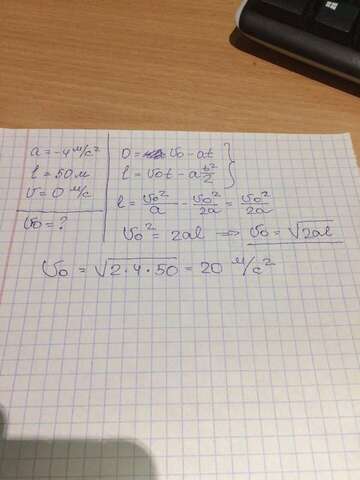 a = -4 м/с²
l = 50 м
v = 0 м/с
v₀ = ?
0 = v₀ - at
l = v₀t - a t²/2
l = v₀²/a - v₀²/2a = v₀²/2a
v₀² = 2al => v₀ = √2al
v₀ = √2·4·50 = 20 м/с²